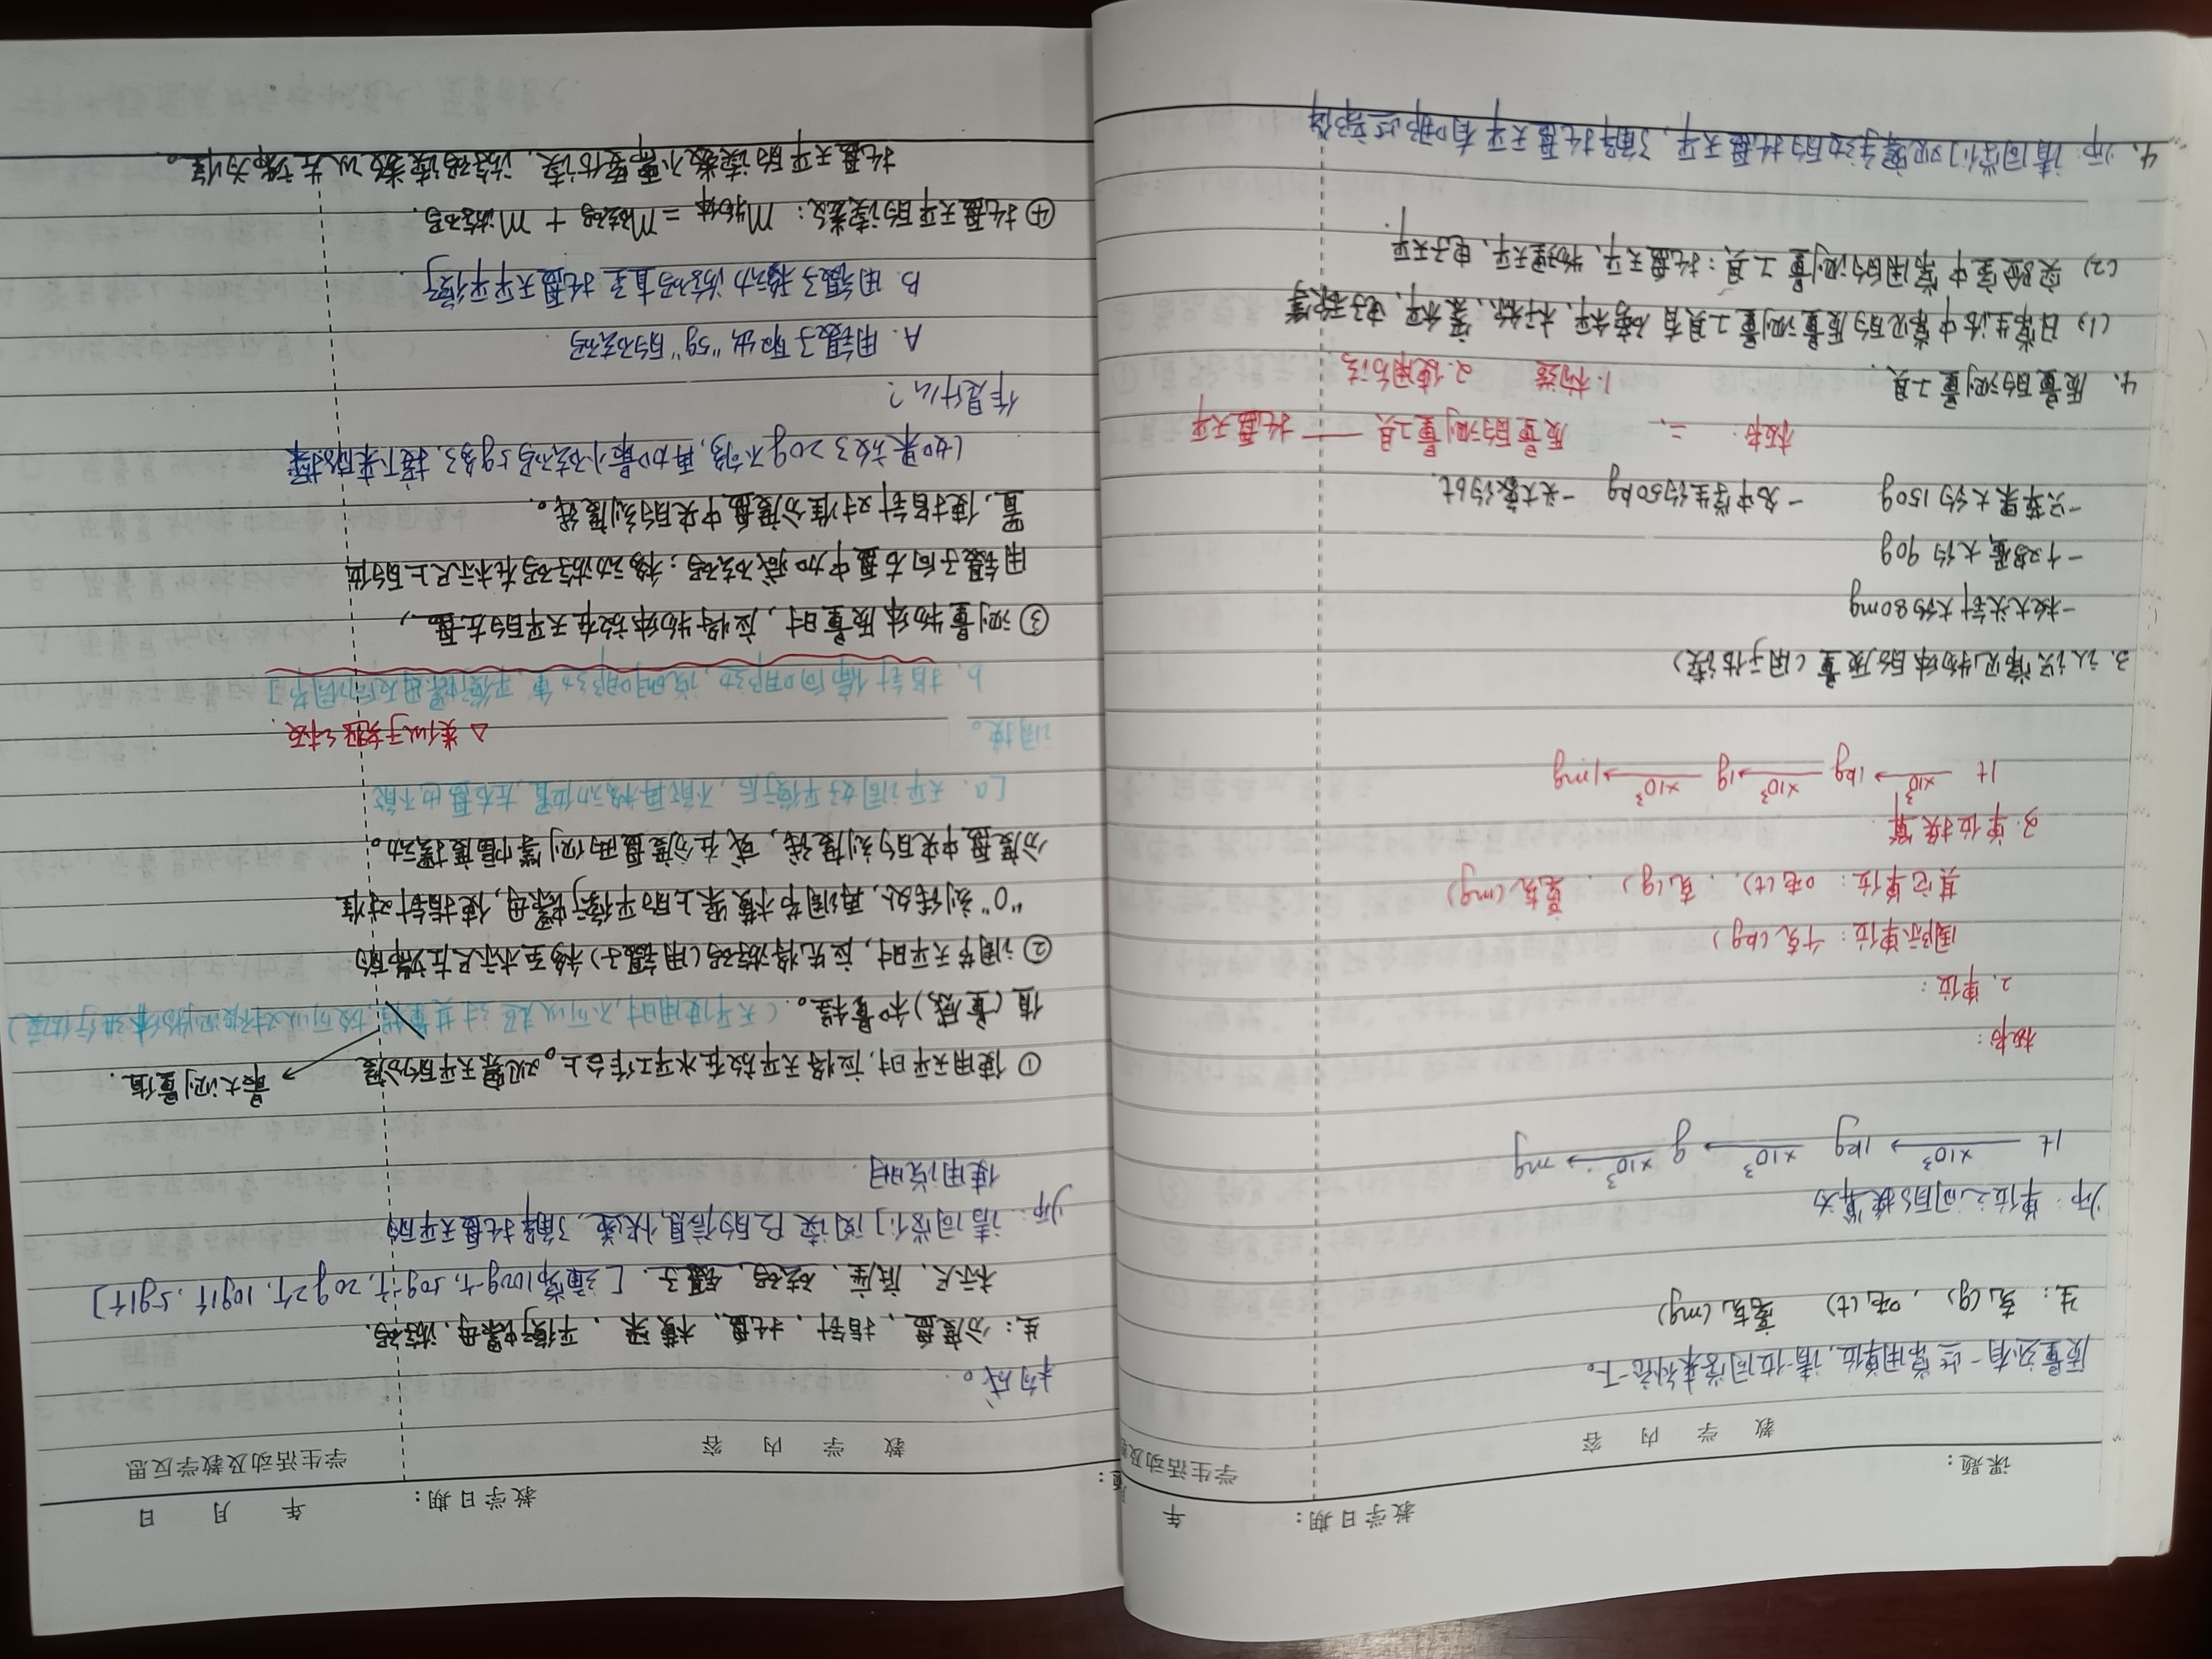 课题：
教学日期： 年
教 学 内 容
学生活动及教
质量还有一些常用单位，请一位同学来补充一下。
生：克(g)，吨(t) 毫克(mg)
师：单位之间的换算为
1t ×10³ 1kg ×10³ g ×10³ mg
板书：
2. 单位：
国际单位：千克(kg)
其它单位：吨(t)、克(g)、毫克(mg)
3. 单位换算
1t ×10³ 1kg ×10³ 1g ×10³ 1mg
3. 认识常见物体的质量(用于估读)
一枚大头针大约80mg
一个鸡蛋大约
一只苹果大约150g 一名中学生约50kg 一头大象约6t.
板书： 二、 质量的测量工具 —— 托盘天平
1. 构造 2. 使用方法
4. 质量的测量工具.
(1) 日常生活中常见的质量测量工具有
(2) 实验室中常用的测量工具：托盘天平、物理天平、电子天平.
4. 师：请同学们观察手边的托盘天平，了解托盘天平有哪些部件
题：
教学日期： 年 月 日
教 学 内 容
学生活动及教学反思
构成。
生：分度盘、指针、托盘、横梁、平衡螺母、游码、
标尺、底座、砝码、镊子.［通常100g一个, 50g一个, 20g2个, 10g1个, 5g1个］
师：请同学们阅读 的信息快递，了解托盘天平的
使用说明.
① 使用天平时，应将天平放在水平工作台上。观察天平的分度
最大测量值.
值(量感)和量程。(天平使用时，不可以超过其量程
② 调节天平时，应先将游码(用镊子)移至标尺左端的
“0”刻线处，再调节横梁上的平衡螺母，使指针对准
分度盘中央的刻度线，或在分度盘两侧等幅度摆动。
［a. 天平调好平衡后，不能再移动位置，左右盘也不能
调换。
△ 类似于跷跷板.
b. 指针偏向哪边，说明哪边重，平衡螺母反向调节］
③ 测量物体质量时，应将物体放在天平的左盘，
用镊子向右盘中加减砝码；移动游码在标尺上的位
置，使指针对准分度盘中央的刻度线。
(如果放了20g不够，再加最小砝码5g多了，接下来的操
作是什么？
A. 用镊子取出“5g”的砝码
B. 用镊子移动游码直至托盘天平平衡)
④ 托盘天平的读数：m物体 = m砝码 + m游码.
托盘天平的读数不需要估读，游码读数以左端为准。